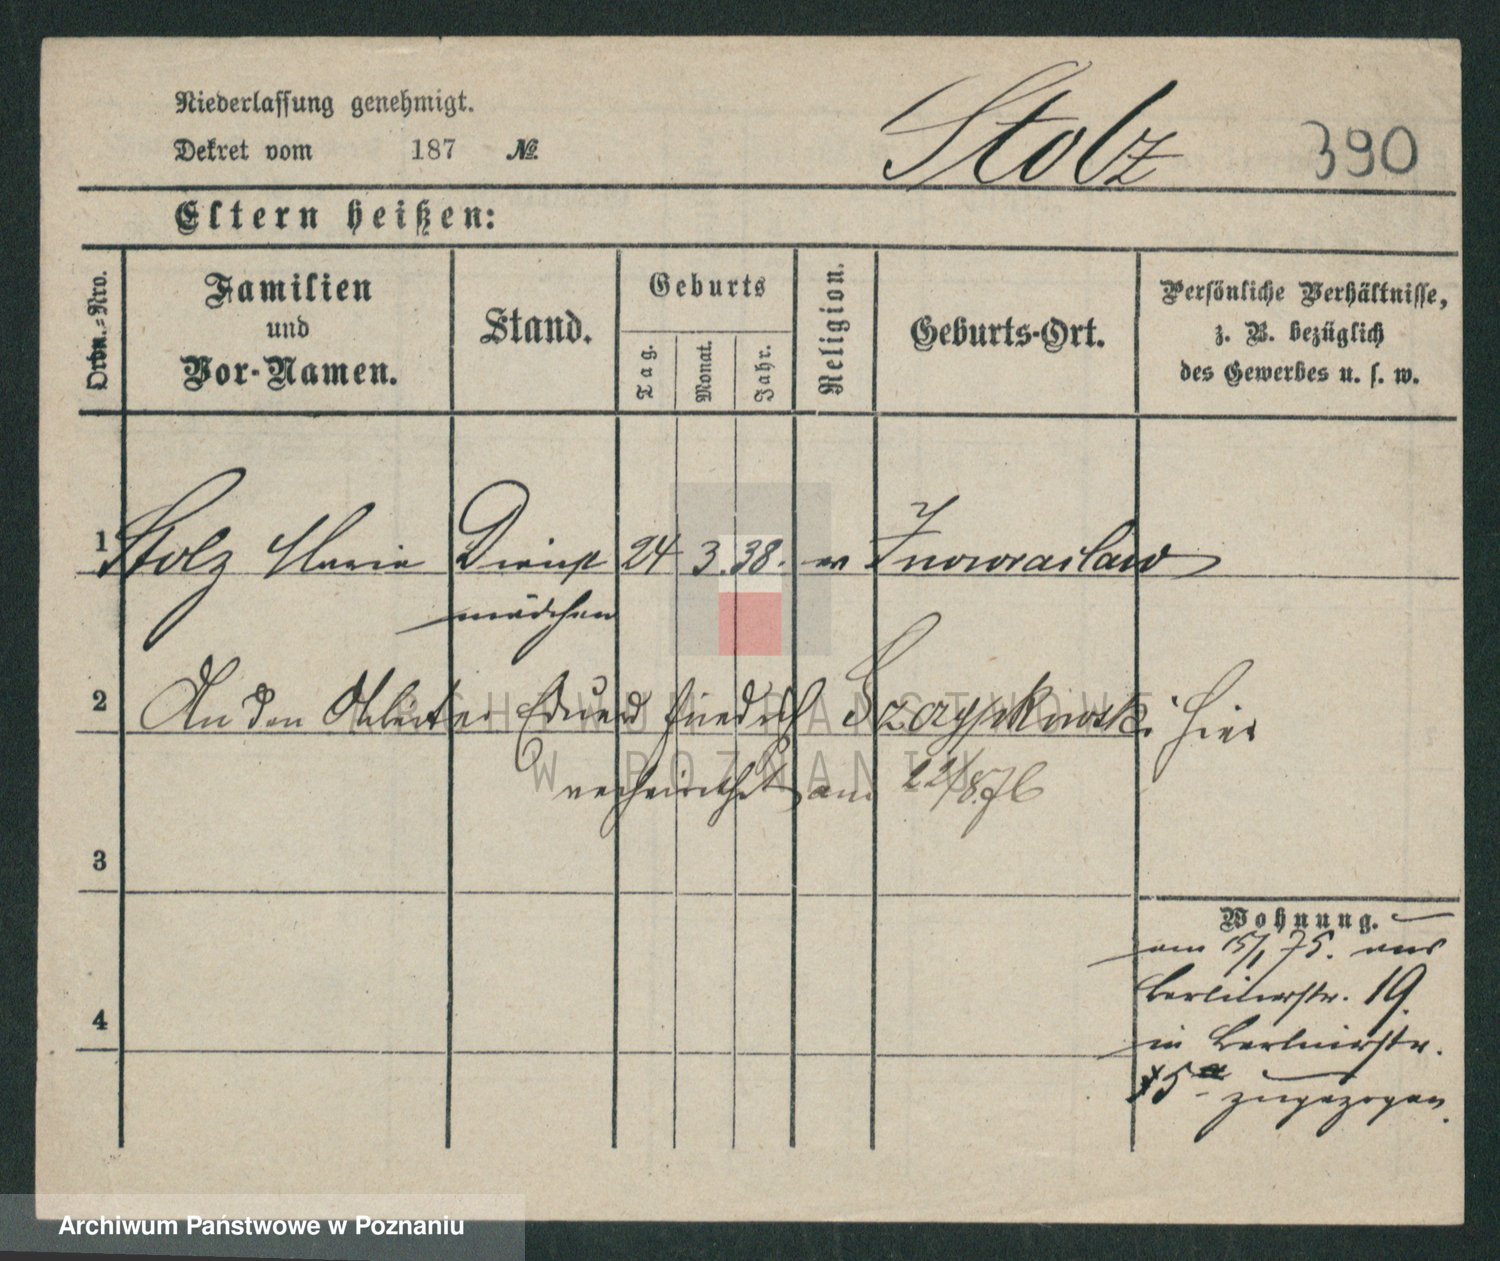 Niederlassung genehmigt.
Dekret vom 187 №
Stolz 390
Eltern heißen:
Ordn.=Nro.
Familien
und
Vor-Namen.
Stand.
Geburts
Tag.
Monat.
Jahr.
Religion.
Geburts-Ort.
Persönliche Verhältnisse,
z. B. bezüglich
des Gewerbes u. s. w.
1 Stolz Marie Dienst 24 3. 38. ev Inowraclaw
mädchen
2 An den Arbeiter Eduard Friedrich Szczypkowski hier
verheirathet am 22/8.76
3
4
Wohnung.
am 15/1 75. aus
Berlinerstr. 19.
in Berlinerstr.
15a zugezogen.
ARCHIWUM PAŃSTWOWE
W POZNANIU
Archiwum Państwowe w Poznaniu